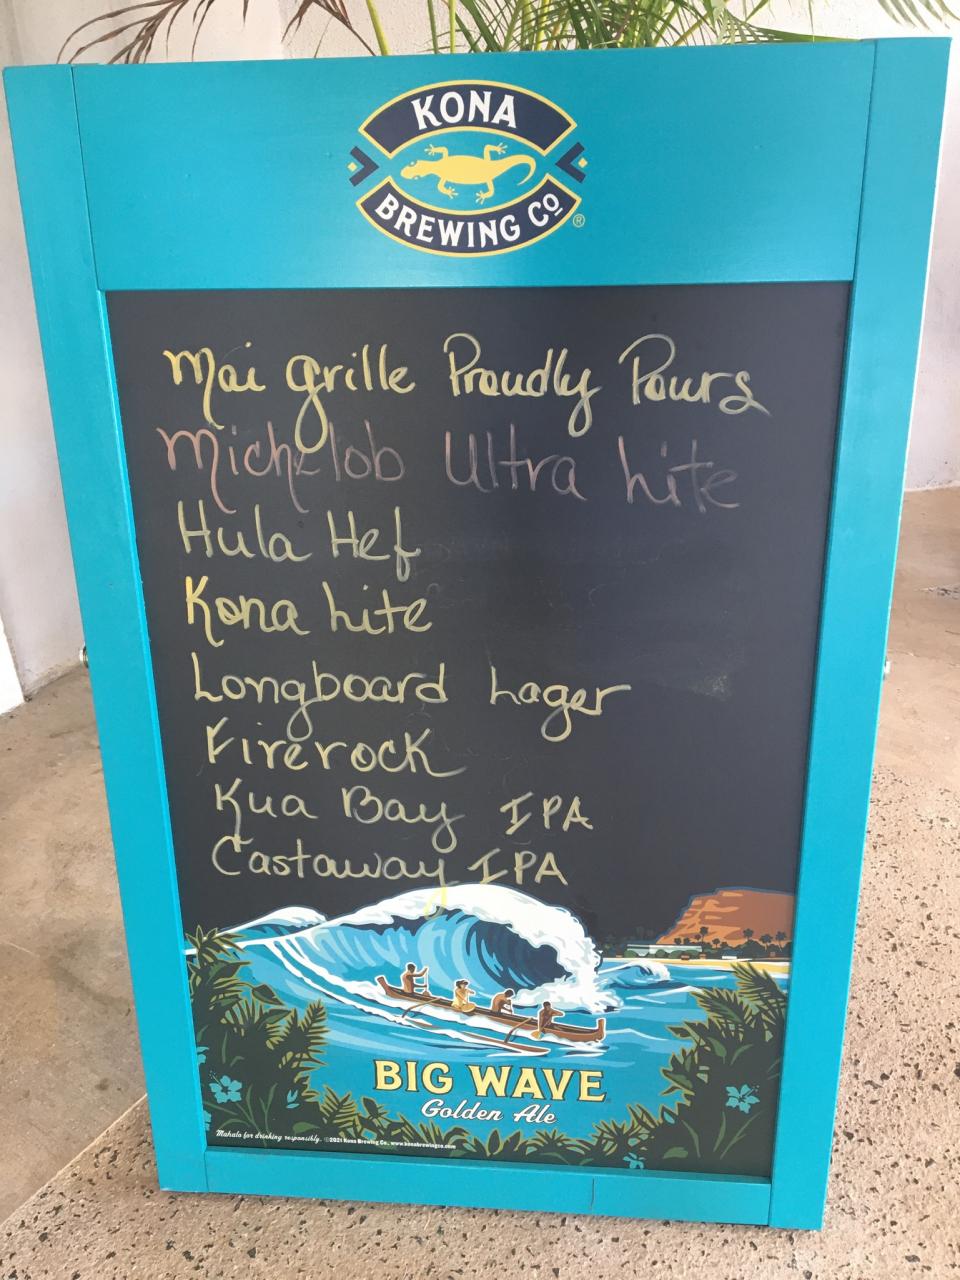 KONA
BREWING CO®
Mai Grille Proudly Pours
Michelob Ultra Lite
Hula Hef
Kona Lite
Longboard Lager
Firerock
Kua Bay IPA
Castaway IPA
BIG WAVE
Golden Ale
Mahalo for drinking responsibly. ©2021 Kona Brewing Co., www.konabrewingco.com